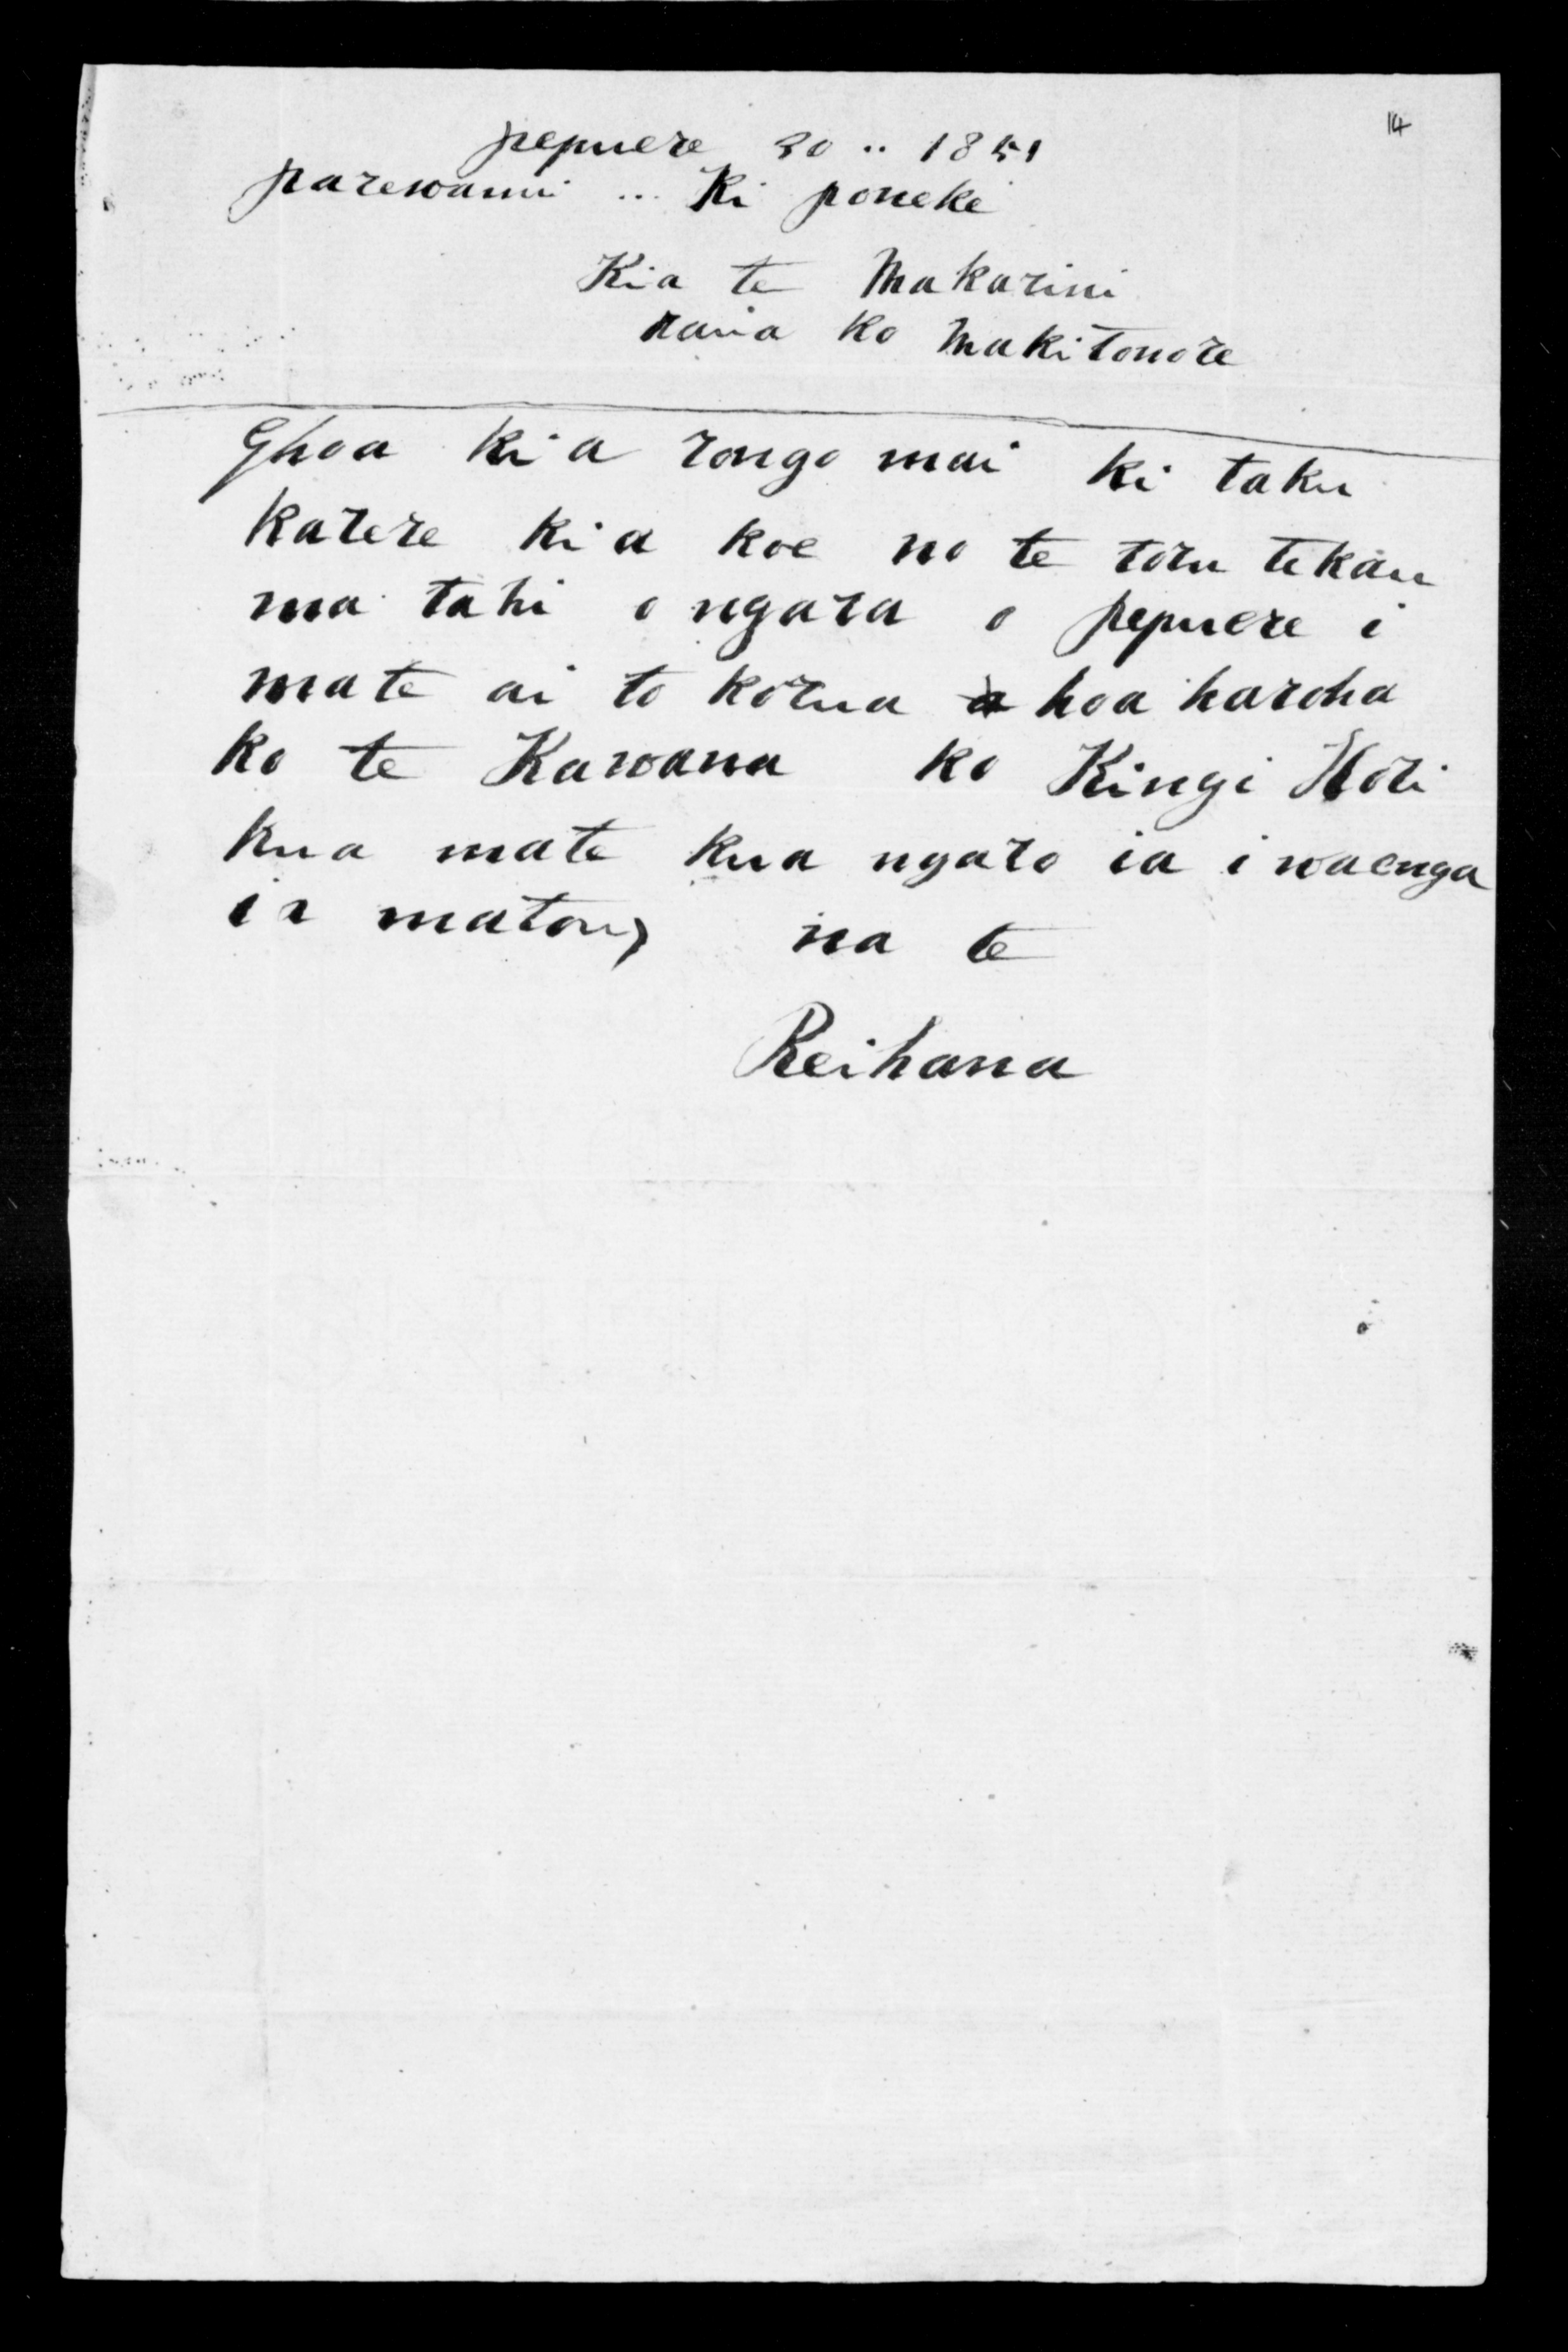 14
pepuere 30 .. 1851
parewanui ... Ki poneke
Kia te Makarini
raua ko Makitonore
Ehoa kia rongo mai ki taku
karere kia koe no te toru tekau
ma tahi o ngara o pepuere i
mate ai to korua hoa haroha
ko te Kawana ko Kingi Hori
kua mate kua ngaro ia i waenga
ia matou, na te
Reihana